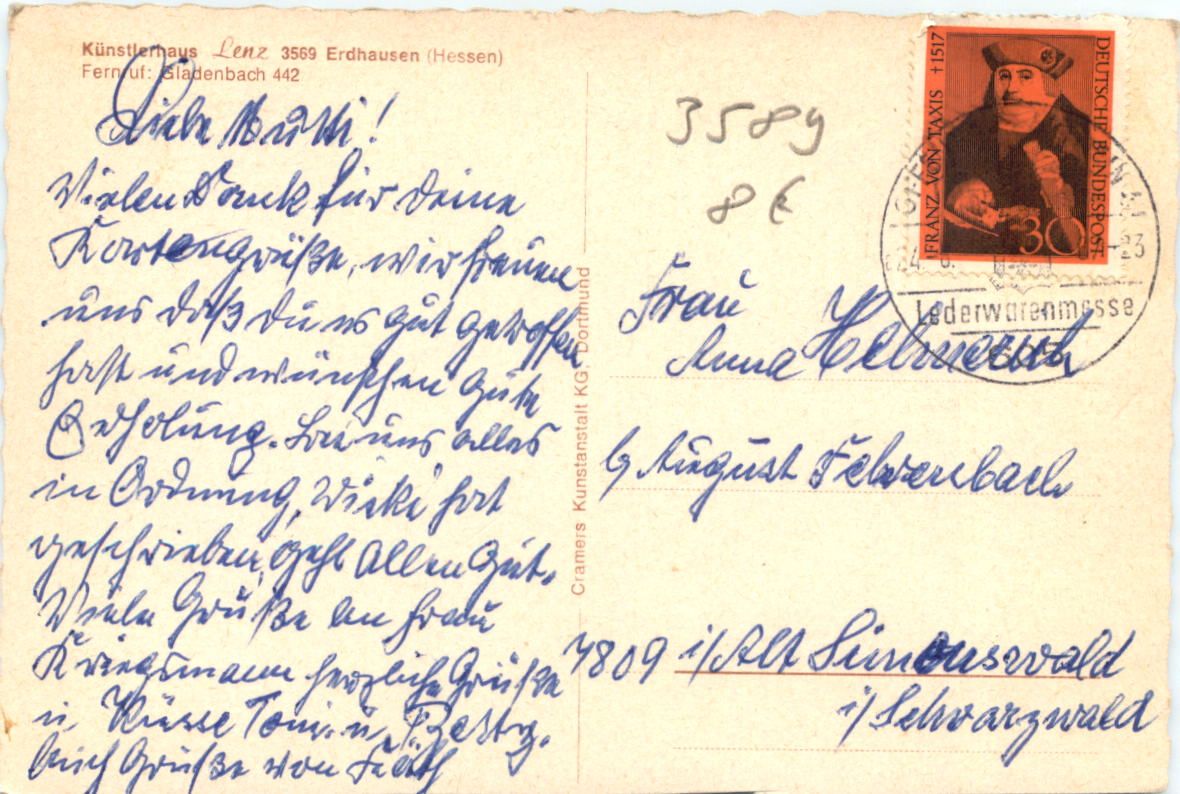 Künstlerhaus Lenz 3569 Erdhausen (Hessen)
Fernruf: Gladenbach 442
Liebe Mutti!
Vielen Dank für Deine
Kartengrüße, wir freuen
uns daß Du es gut getroffen
hast und wünschen gute
Erholung. Bei uns alles
in Ordnung, Wicki hat
geschrieben, geht Allen gut.
Viele Grüße an Frau
Kriegsmann herzliche Grüße
u. Küsse Toni u.
Auch Grüße von
Cramers Kunstanstalt KG, Dortmund
3589
8 €
FRANZ VON TAXIS †1517
DEUTSCHE BUNDESPOST
30
Lederwarenmesse
Frau
Anna
b/ August Fehrenbach
7809 i/ Alt Simonswald
i/ Schwarzwald